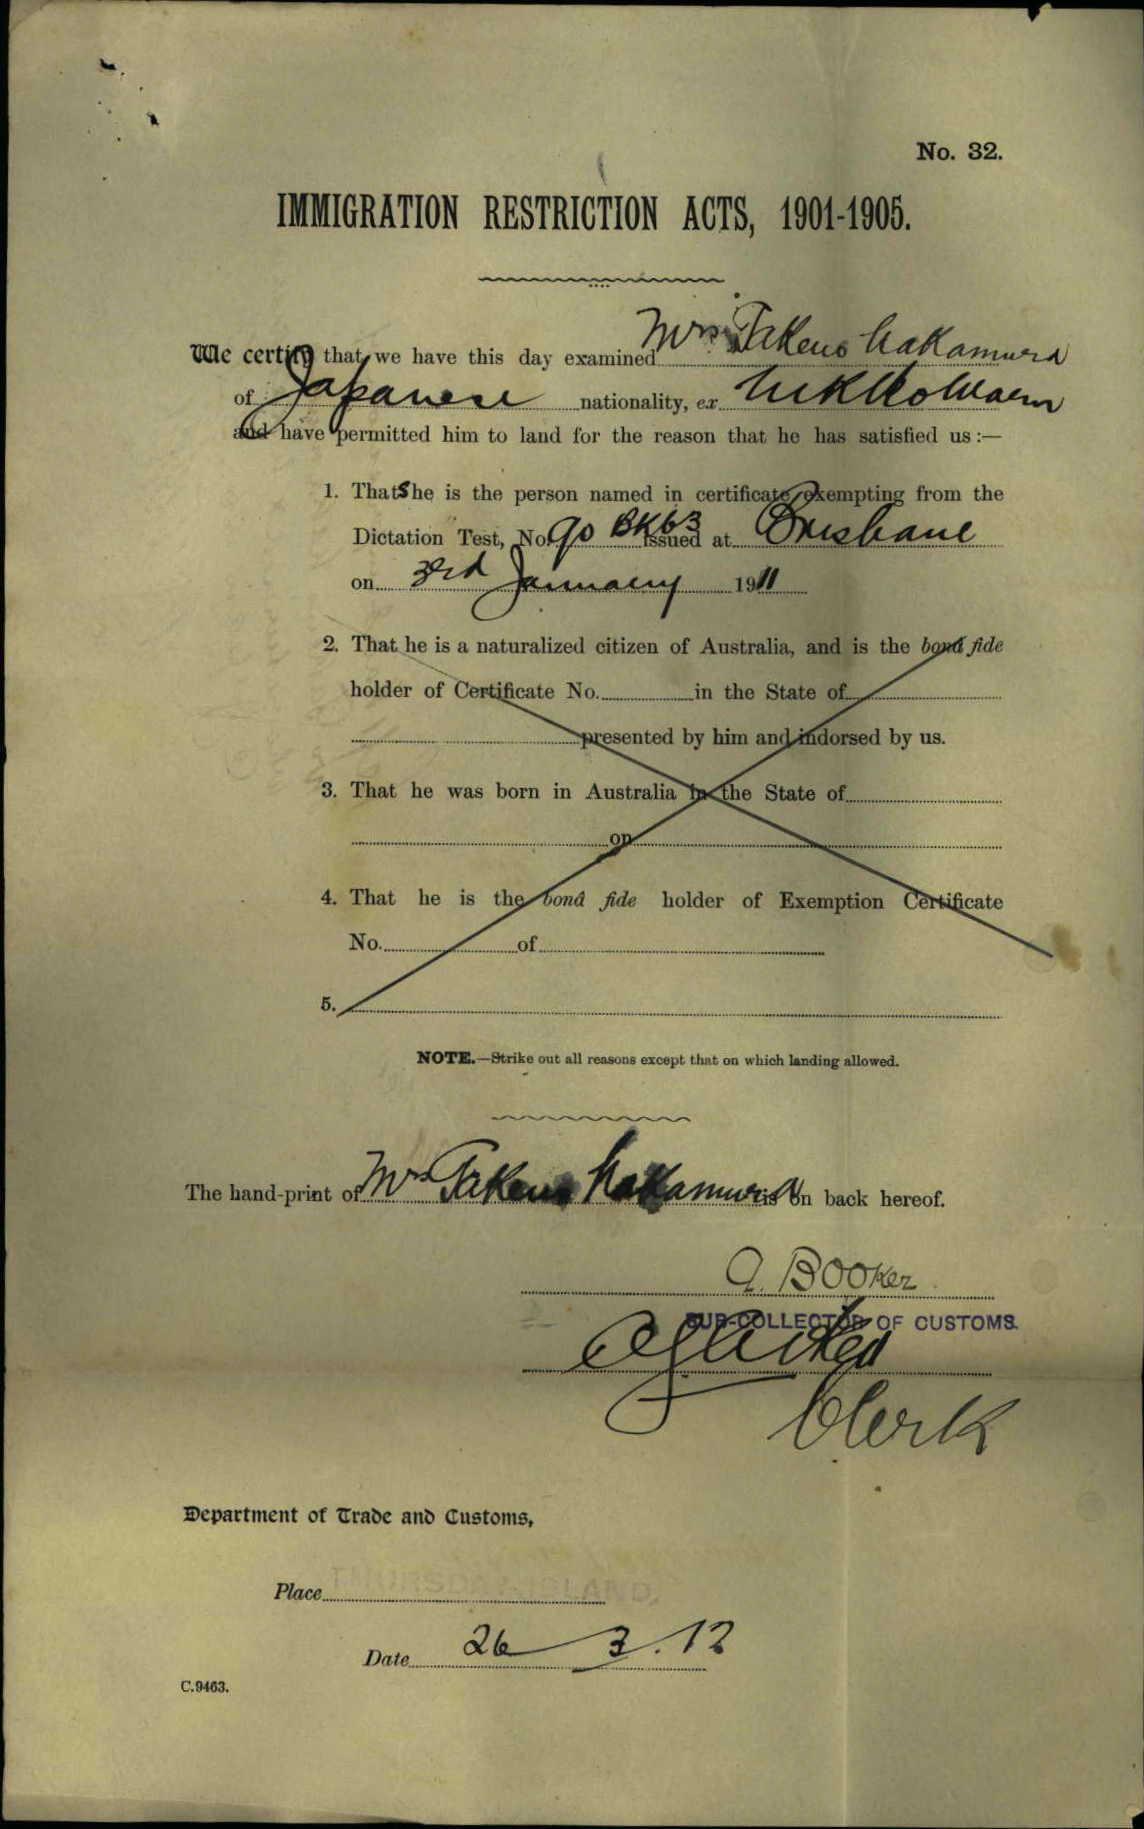 No. 32.
IMMIGRATION RESTRICTION ACTS, 1901-1905.
We certify that we have this day examined Mrs Takeno Nakamura
of Japanese nationality, ex
and have permitted him to land for the reason that he has satisfied us :—
1. That She is the person named in certificate exempting from the
Dictation Test, No. 90 BK63 issued at Brisbane
on 3rd January 1911
2. That he is a naturalized citizen of Australia, and is the bonâ fide
holder of Certificate No. in the State of
presented by him and indorsed by us.
3. That he was born in Australia in the State of
on
4. That he is the bonâ fide holder of Exemption Certificate
No. of
5.
NOTE.—Strike out all reasons except that on which landing allowed.
The hand-print of Mrs Takeno Nakamura is on back hereof.
A. Booker
SUB-COLLECTOR OF CUSTOMS.
Clerk
Department of Trade and Customs,
Place THURSDAY ISLAND.
Date 26 3.12
C.9463.